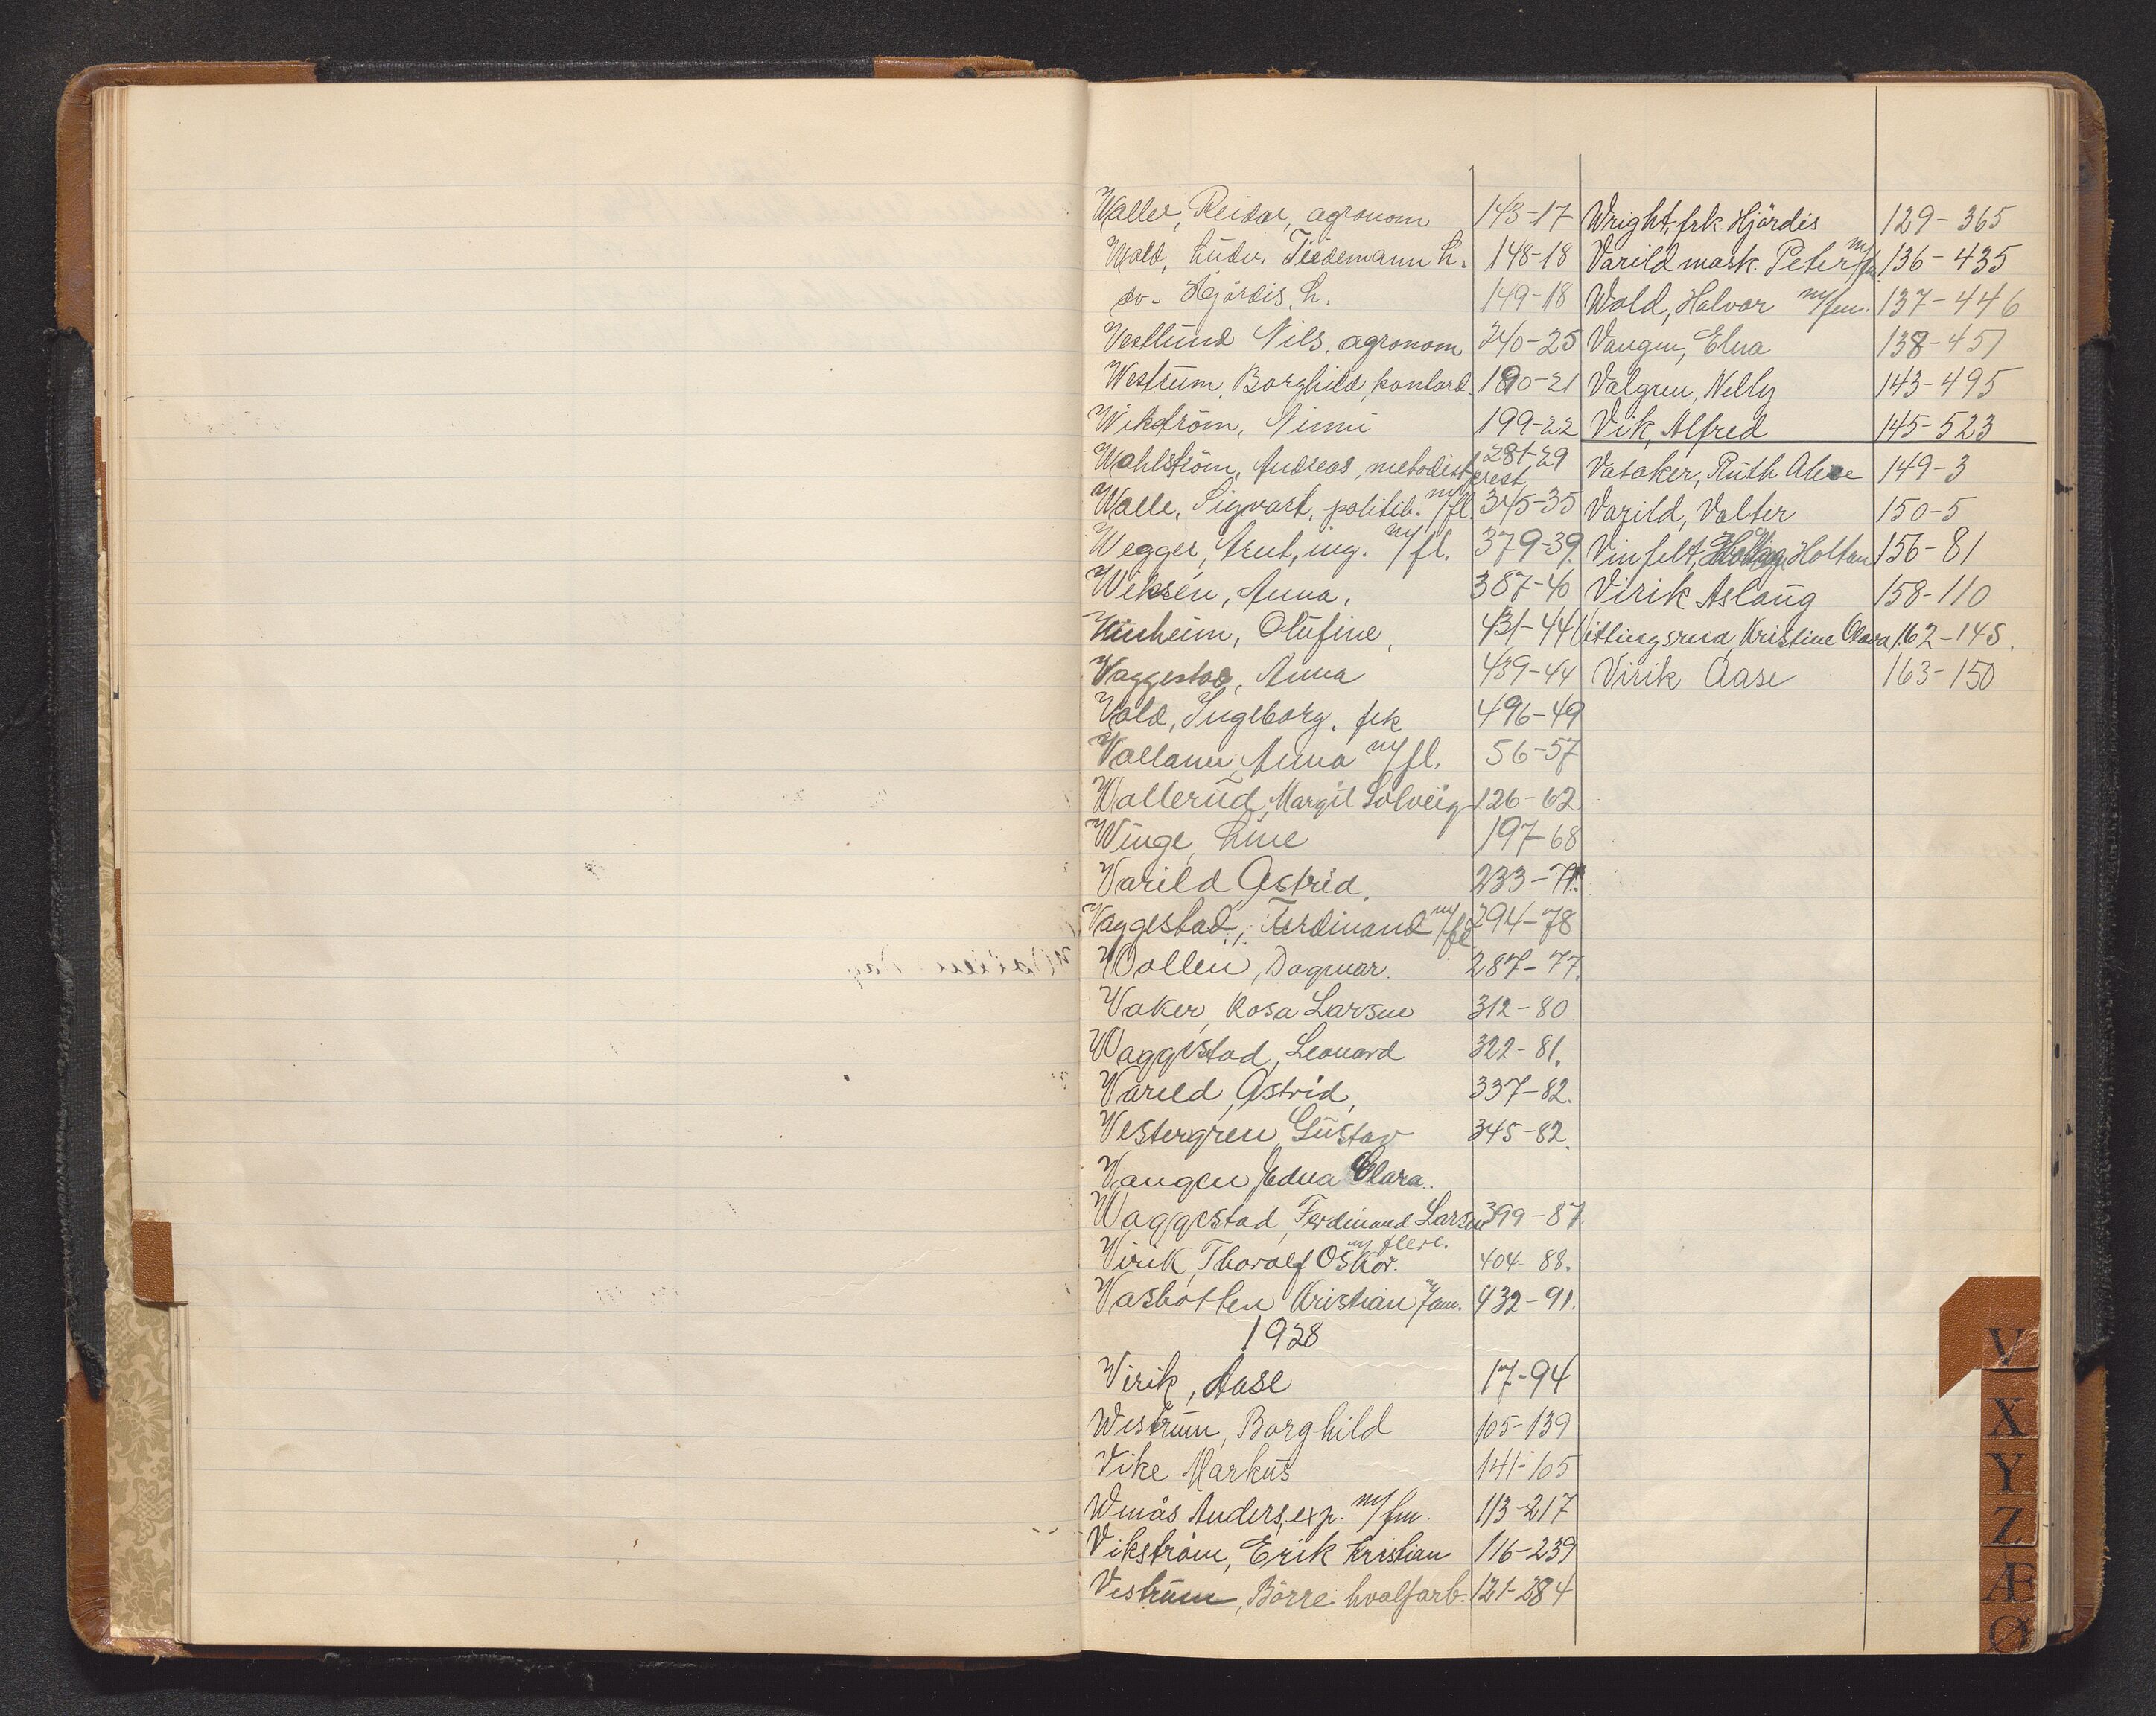 Waller, Reidar, agronom 143-17
Wold, Ludv. Tiedemann L. 148-18
do- Hjördis L. 149-18
Vestlund Nils. agronom 240-25
Westrum, Borghild, kontord. 190-21
Wikström, Nimi 199-22
Wahlström, Andreas, metodistprest 281-29
Walle, Sigvart, politib. m/fl. 345-35
Wegger, Arnt, ing. m/fl. 379-39.
Wiksén, Anna, 387-40
Vinheim, Olufine, 431-44
Vaggestad, Anna 439-44
Vold, Ingeborg, frk 496-49
Vollann, Anna m/fl. 56-57
Wollerud, Margit Solveig 126-62
Winge, Line 197-68
Varild Astrid. 233-71.
Vaggestad, Ferdinand m/fl 294-78
Wollen, Dagmar. 287-77.
Vaker, Rosa Larsen 312-80
Waggestad, Leonard 322-81.
Varild, Astrid, 337-82.
Vestergren, Gustav 345-82.
Vangen Edna Clara.
Waggestad, Ferdinand Larsen 399-87.
m/ flere.
Virik, Thorolf Oskar. 404-88.
Vasbotten Kristian m/fam. 432-91.
1928
Virik, Aase 17-94
Westrum, Borghild 105-139
Vike Markus 141-105
Wenås Anders, exp. m/fm. 113-217
Vikström, Erik Kristian 116-239
Vestrum, Börre hvalfarb. 121-284
Wright, frk. Hjördis 129-365
Varild mask. Peter m/fm 136-435
Wold, Halvor m/fm. 137-446
Vangen, Elna 138-451
Valgren, Nelly 143-495
Vik, Alfred 145-523
Vataker, Ruth Alice 149-3
Varild, Valter 150-5
Vinfelt, Holtan 156-81
Virik Aslaug 158-110
Vittingsrud, Kristine Olava 162-145.
Virik Aase 163-150
V
X
Y
Z
Æ
Ø